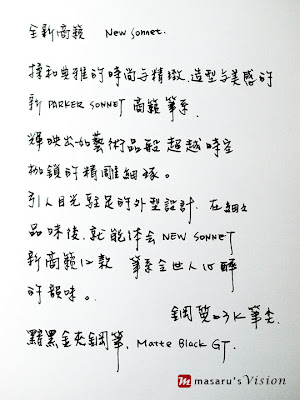 全新商籟 New Sonnet.
揉和典雅的時尚与精緻,造型与美感的
新 PARKER SONNET 商籟筆系.
輝映出如藝術品般 超越時空
的精雕細琢。
引人目光駐足的外型設計. 在細細
品味後,就能体会 NEW SONNET
新商籟12款 筆系令世人心醉
的韻味。
鋼質 23K 筆尖.
黯黑金夾鋼筆. Matte Black GT.
m masaru's Vision